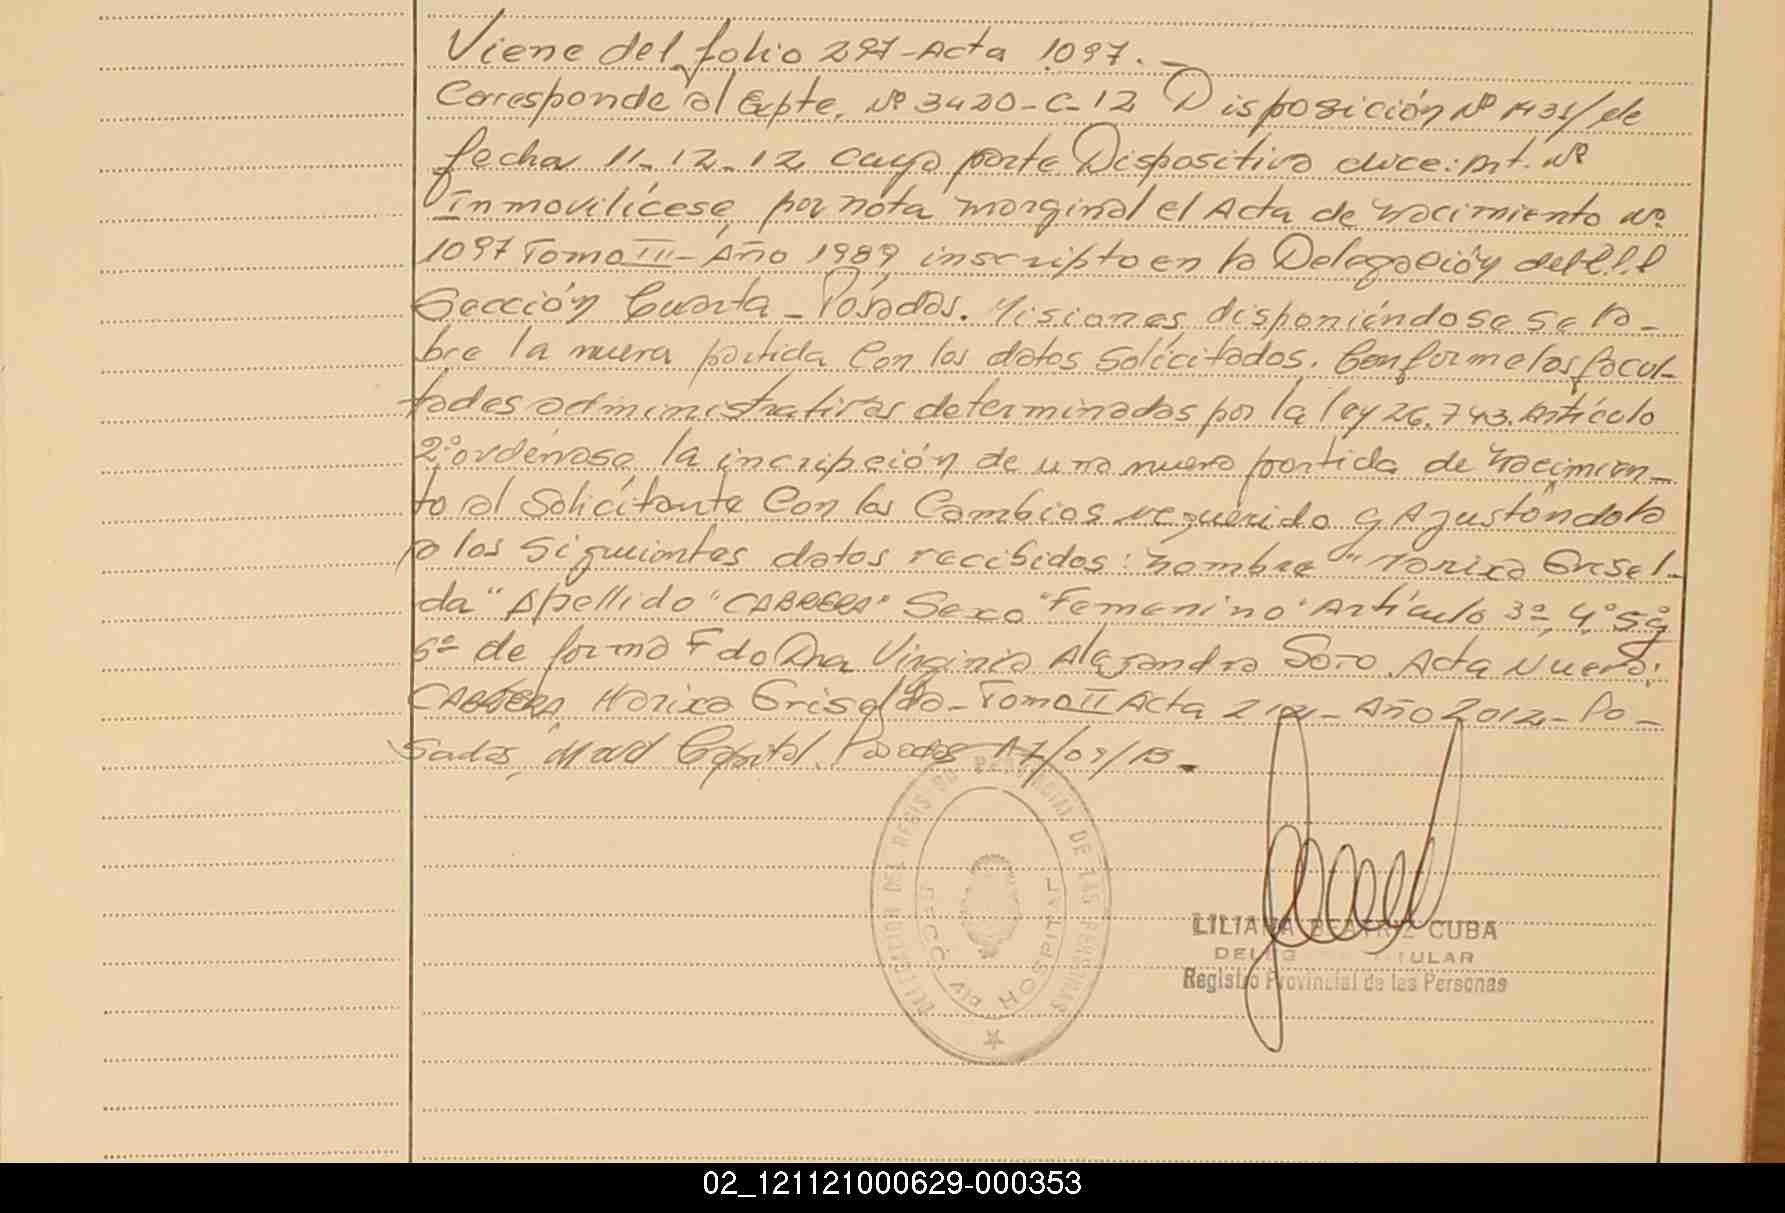 Viene del folio 297-Acta 1097.-
Corresponde al Expte. Nº 3420-C-12 Disposición Nº 1431/ de
fecha 11-12-12 cuya parte Dispositiva dice: Art. Nº
Inmovilícese, por nota marginal el Acta de Nacimiento Nº
1097 Tomo III-Año 1989, inscripto en la Delegación del
Sección Cuarta - Posadas. Misiones, disponiéndose se la-
bre la nueva partida con los datos solicitados. Conforme las facul-
tades administrativas determinadas por la ley 26.743. Artículo
2º ordénase, la incripción de una nueva partida de Nacimien-
to al solicitante con los cambios requerido y Ajustándola
a los siguientes datos recibidos: nombre "Marixa Grisel-
da" Apellido "CABRERA" Sexo "Femenino" Artículo 3º, 4º 5º y
6º de forma Fdo Dra Virginia Alejandra Soro Acta Nueva:
CABRERA, Marixa Griselda - Tomo II Acta - Año 2012 - Po-
sadas, Capital. Posadas 17/09/13.-
DELEGACION DEL REGISTRO PROVINCIAL DE LAS PERSONAS
SECC. 4ta HOSPITAL
LILIANA BEATRIZ CUBA
DELEG TITULAR
Registro Provincial de las Personas
02_121121000629-000353